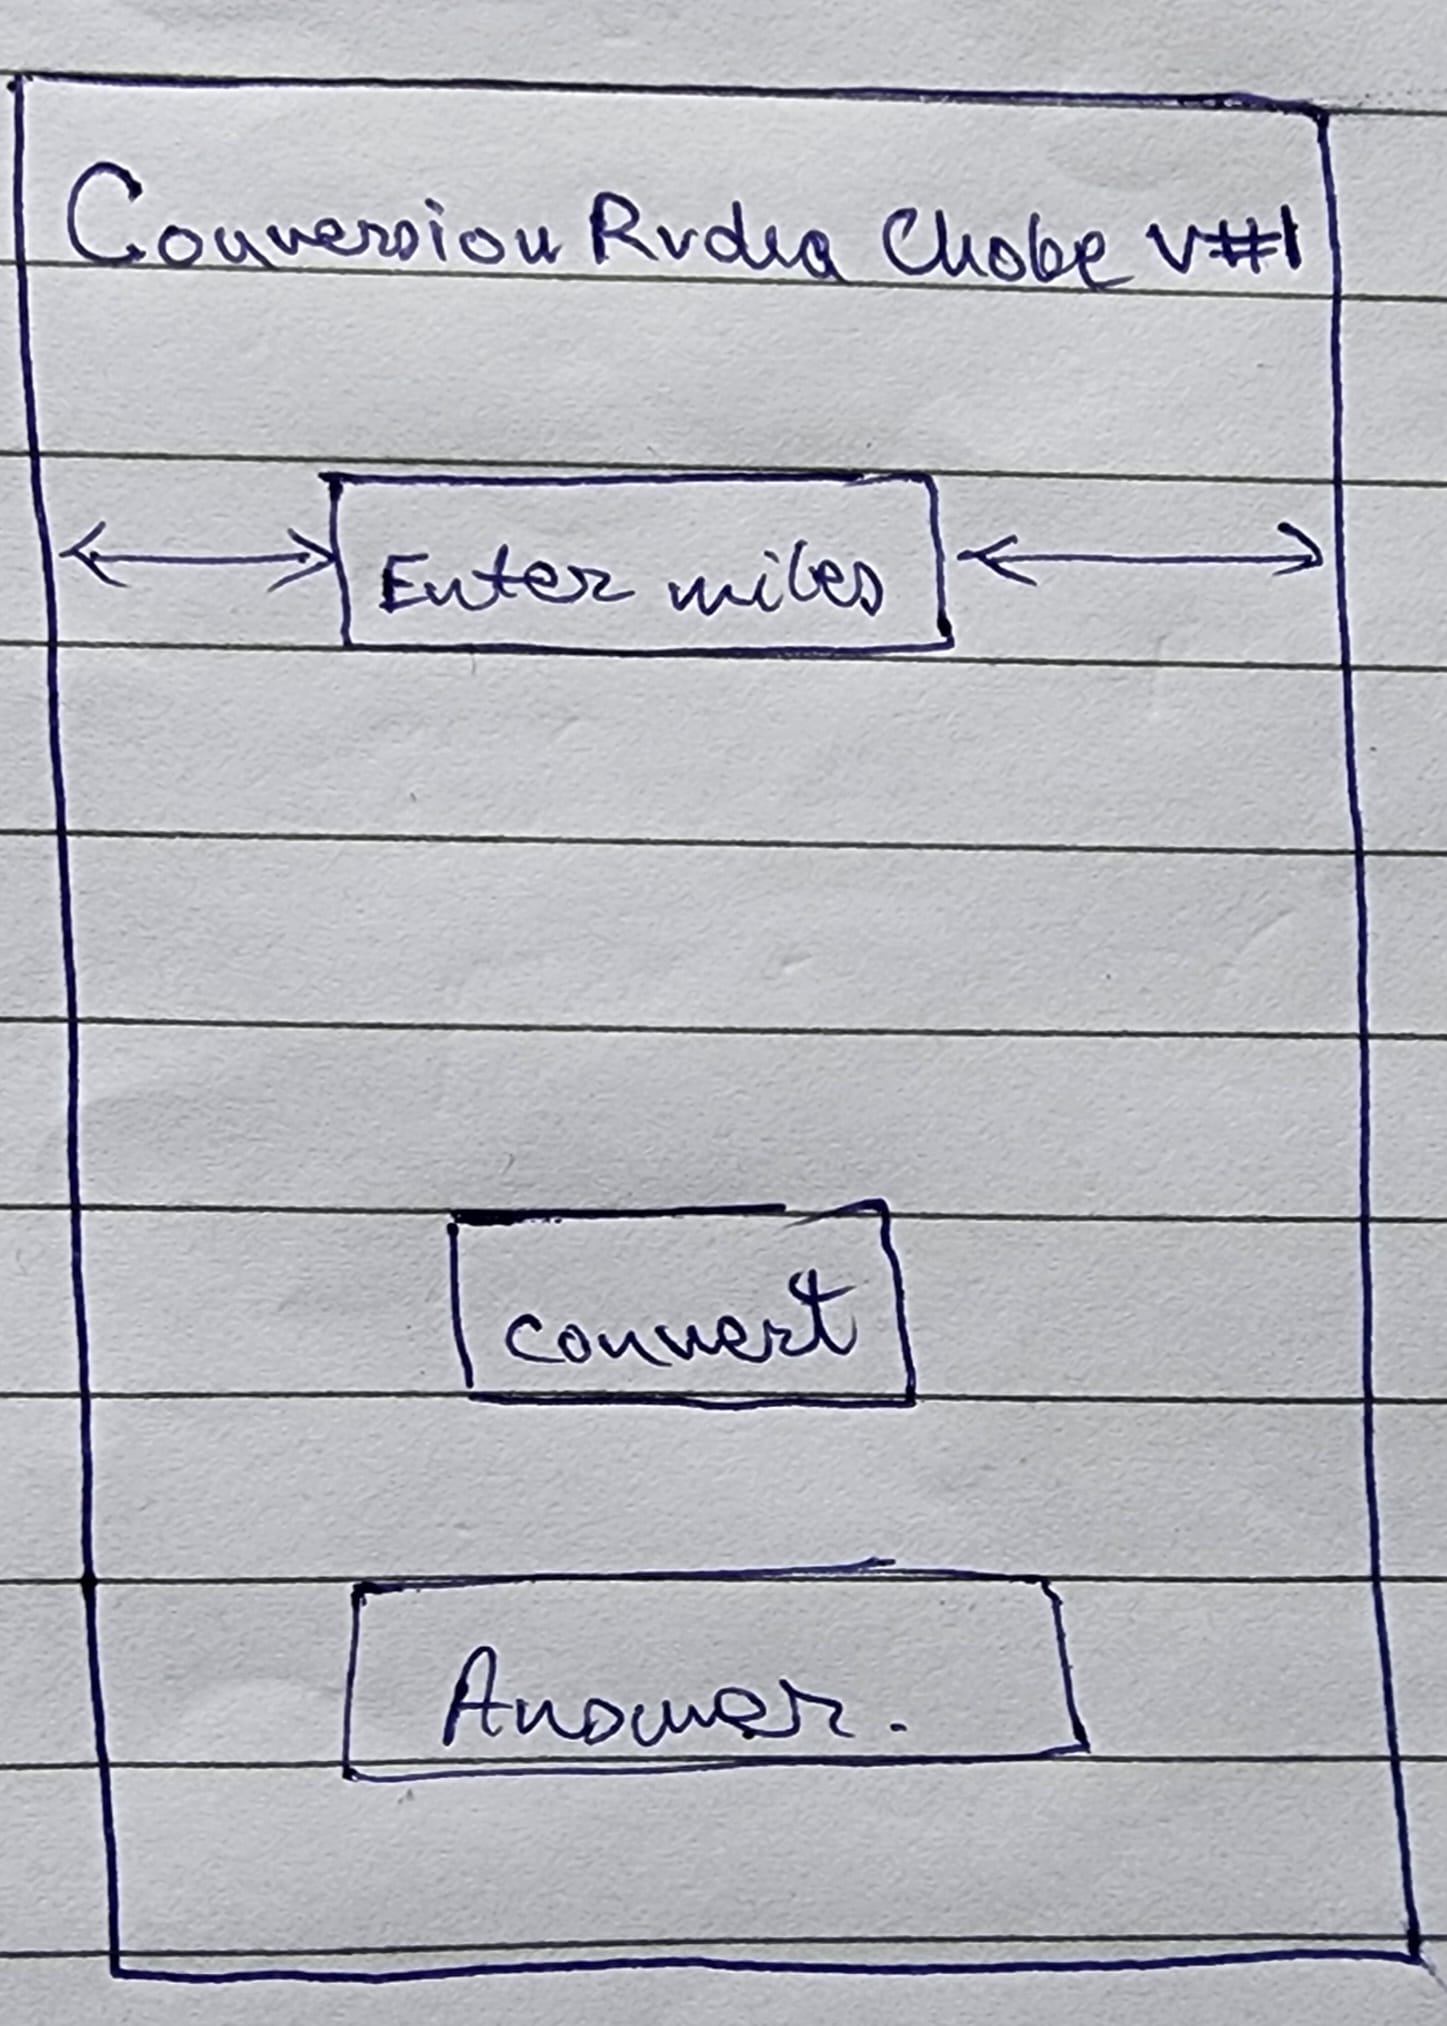 Conversion Rudra Chobe V#1
Enter miles
convert
Answer.